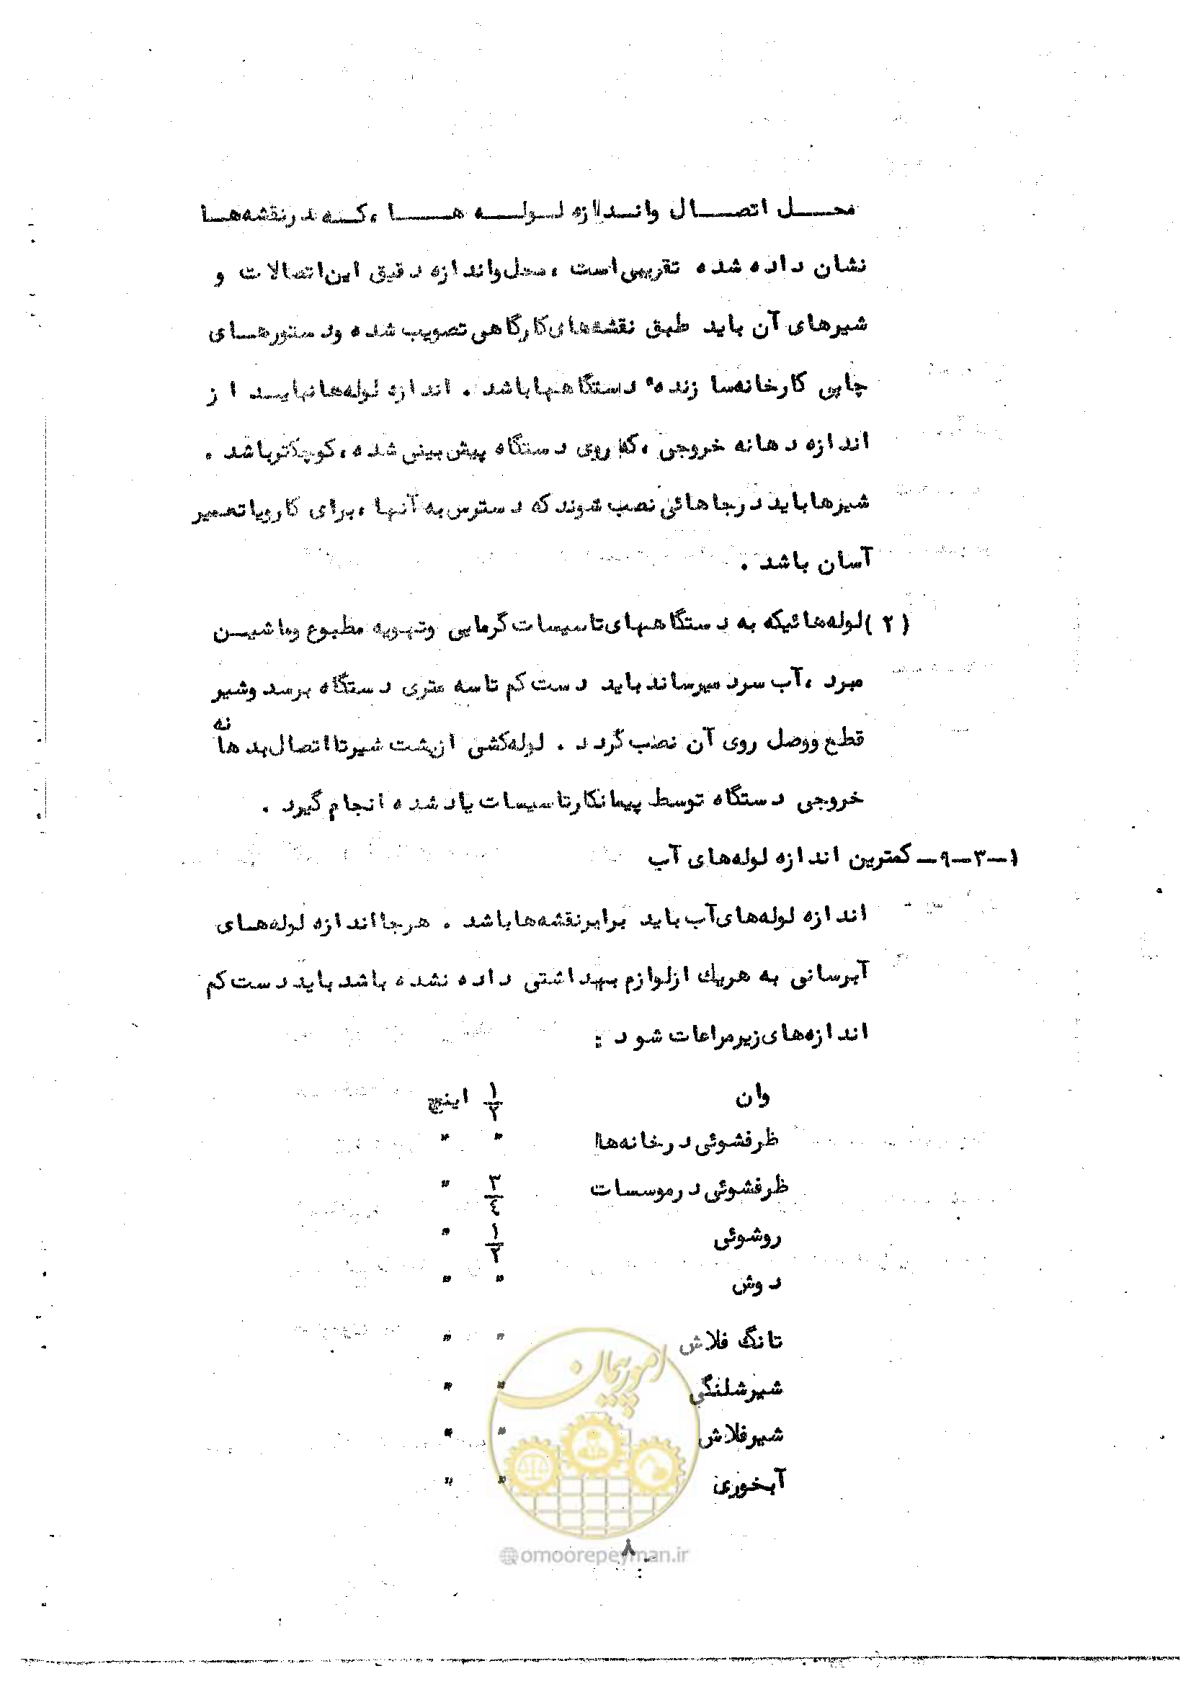 محل اتصال واندازه لوله ها ، که درنقشه‌ها
نشان داده شده تقریبی‌است ، محل‌واندازه دقیق این‌اتصالات و
شیرهای آن باید طبق نقشه‌های‌کارگاهی‌تصویب شده ودستورهای
چاپی کارخانه‌سازندهٔ دستگاهها‌باشد . اندازه لوله‌هانباید از
اندازه دهانه خروجی ،که‌روی دستگاه پیش‌بینی‌شده ،کوچکترباشد .
شیرهاباید درجاهائی نصب شوندکه دسترس‌به آنها ،برای کارویاتعمیر
آسان باشد .
(۲)لوله‌هائیکه به دستگاههای‌تاسیسات‌گرمایی وتهویه مطبوع وماشین
مبرد ،آب سرد میرساند باید دست‌کم تاسه متری دستگاه برسد وشیر
قطع ووصل روی آن نصب‌گردد . لوله‌کشی ازپشت شیرتااتصال‌بدهانه
خروجی دستگاه توسط پیمانکارتاسیسات یادشده انجام گیرد .
۱-۳-۹-کمترین اندازه لوله‌های آب
اندازه لوله‌های‌آب باید برابرنقشه‌هاباشد . هرجااندازه لوله‌های
آبرسانی به هریک ازلوازم بهداشتی داده نشده باشد باید دست‌کم
اندازه‌های‌زیرمراعات شود :
وان ۱/۲ اینچ
ظرفشوئی درخانه‌ها " "
ظرفشوئی درموسسات ۳/۴ "
روشوئی ۱/۲ "
دوش " "
تانک فلاش " "
شیرشلنگی " "
شیرفلاش " "
آبخوری " "
امور پیمان
۸
@omoorepeyman.ir